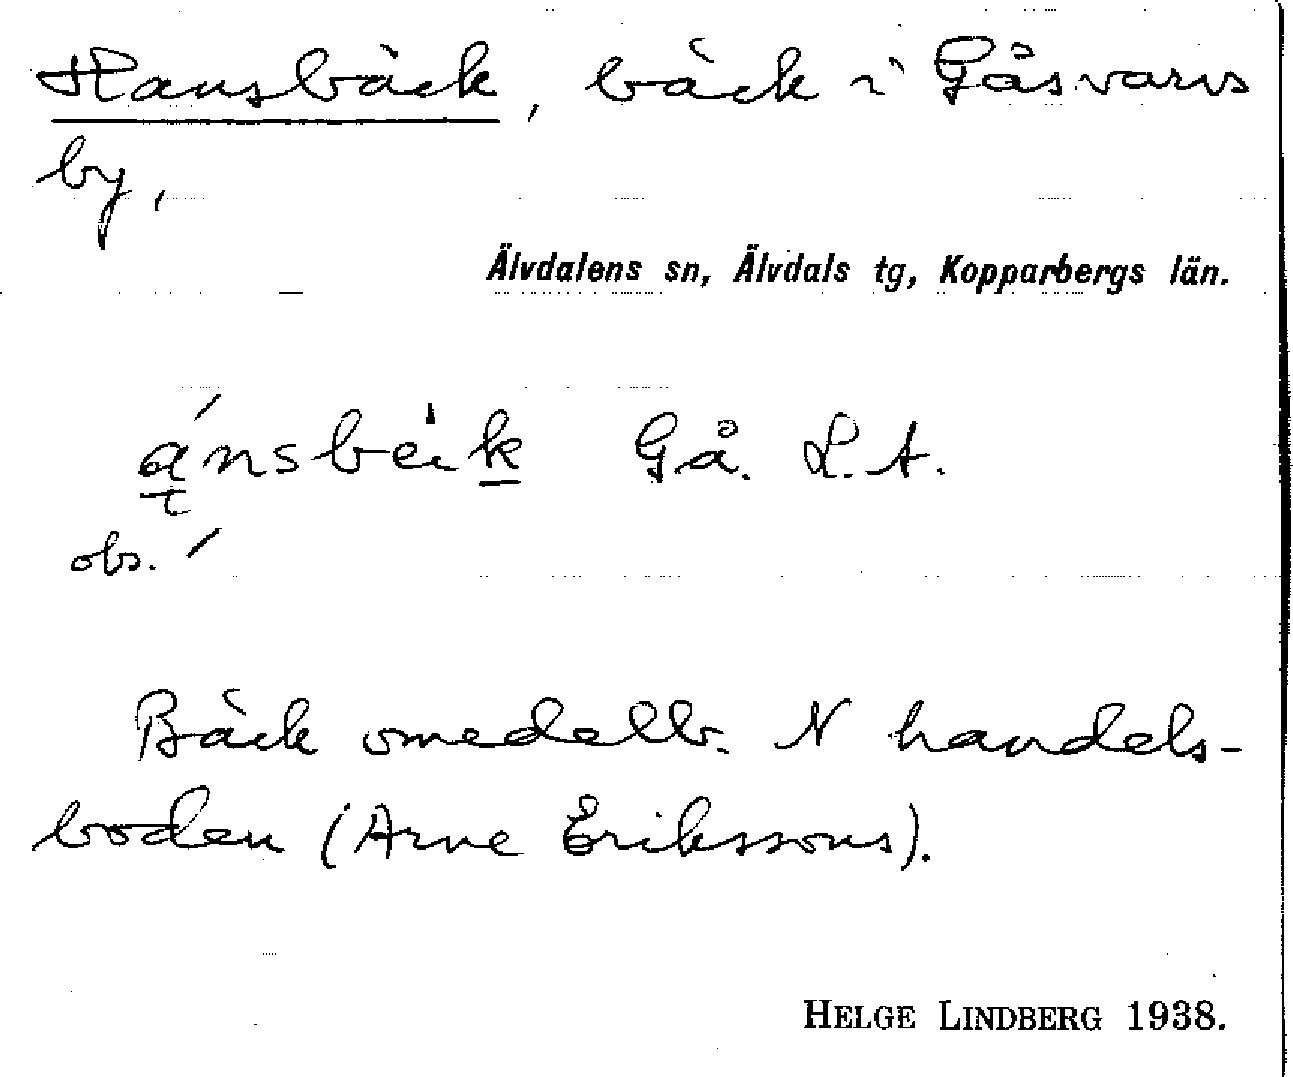 Hansbäck, bäck i Gåsvarvs
by,
Älvdalens sn, Älvdals tg, Kopparbergs län.
ánsbeik Gå. L. A.
obs. ´
Bäck omedelb. N handels-
boden (Arne Erikssons).
HELGE LINDBERG 1938.